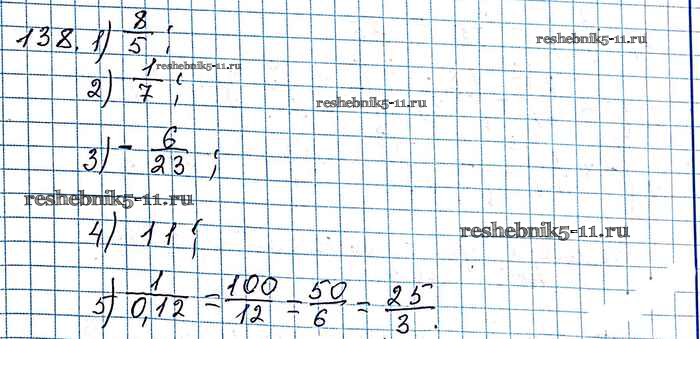 138. 1) 8/5;
reshebnik5-11.ru
reshebnik5-11.ru
2) 1/7;
reshebnik5-11.ru
3) - 6/23;
reshebnik5-11.ru
4) 11;
reshebnik5-11.ru
5) 1/0,12 = 100/12 = 50/6 = 25/3.